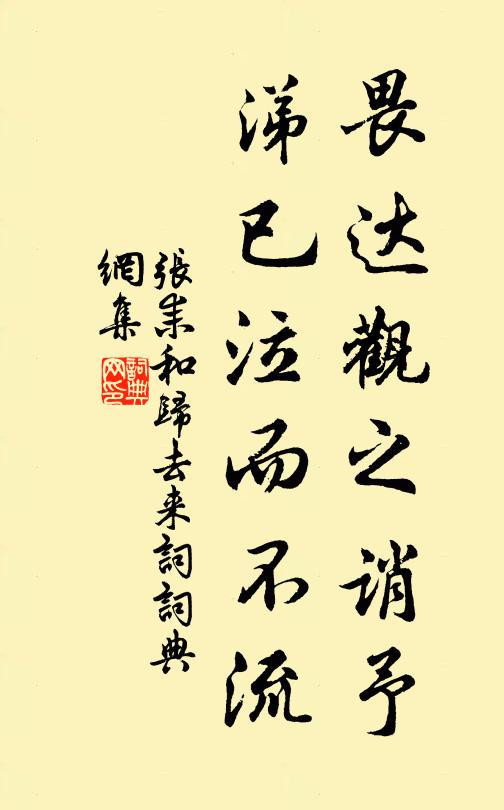 畏达觀之誚予
涕已泣而不流
張耒和歸去来詞詞典
網集
詞典网印